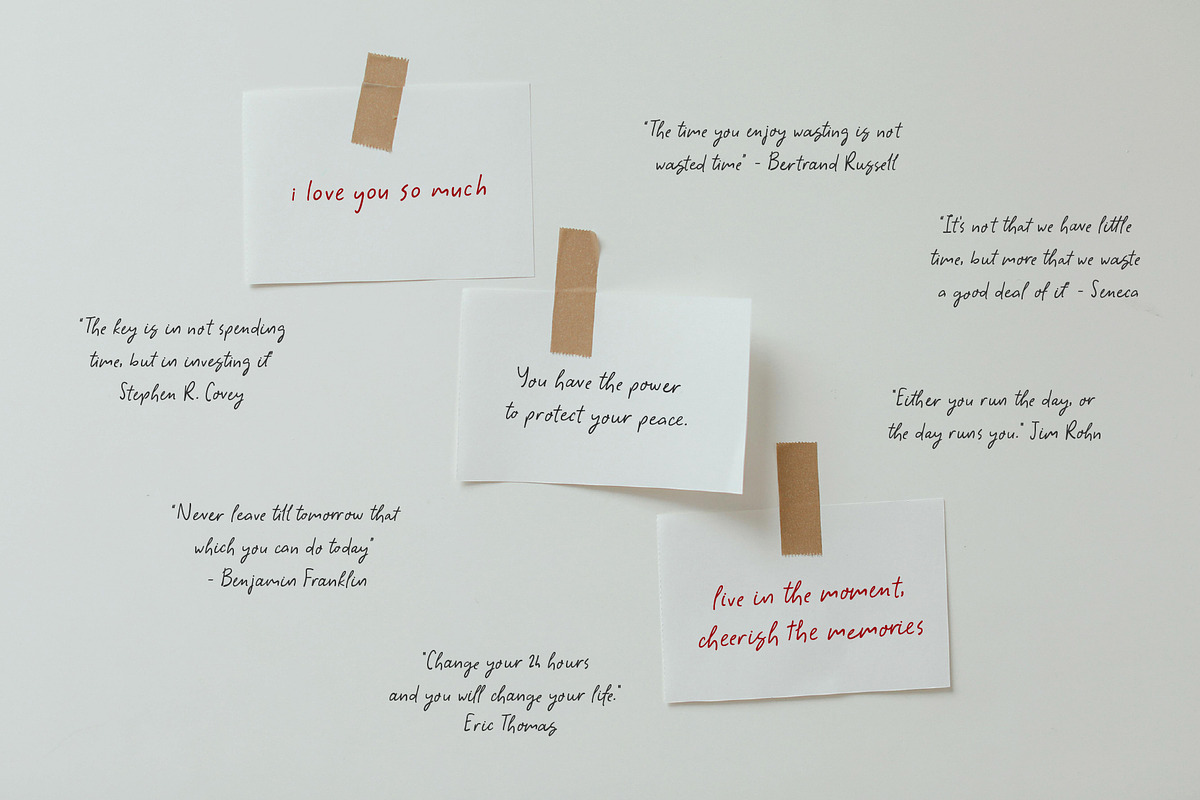 i love you so much
"The time you enjoy wasting is not
wasted time" - Bertrand Russell
"It's not that we have little
time, but more that we waste
a good deal of it" - Seneca
"The key is in not spending
time, but in investing it"
Stephen R. Covey
You have the power
to protect your peace.
"Either you run the day, or
the day runs you." Jim Rohn
"Never leave till tomorrow that
which you can do today"
- Benjamin Franklin
live in the moment,
cheerish the memories
"Change your 24 hours
and you will change your life."
Eric Thomas